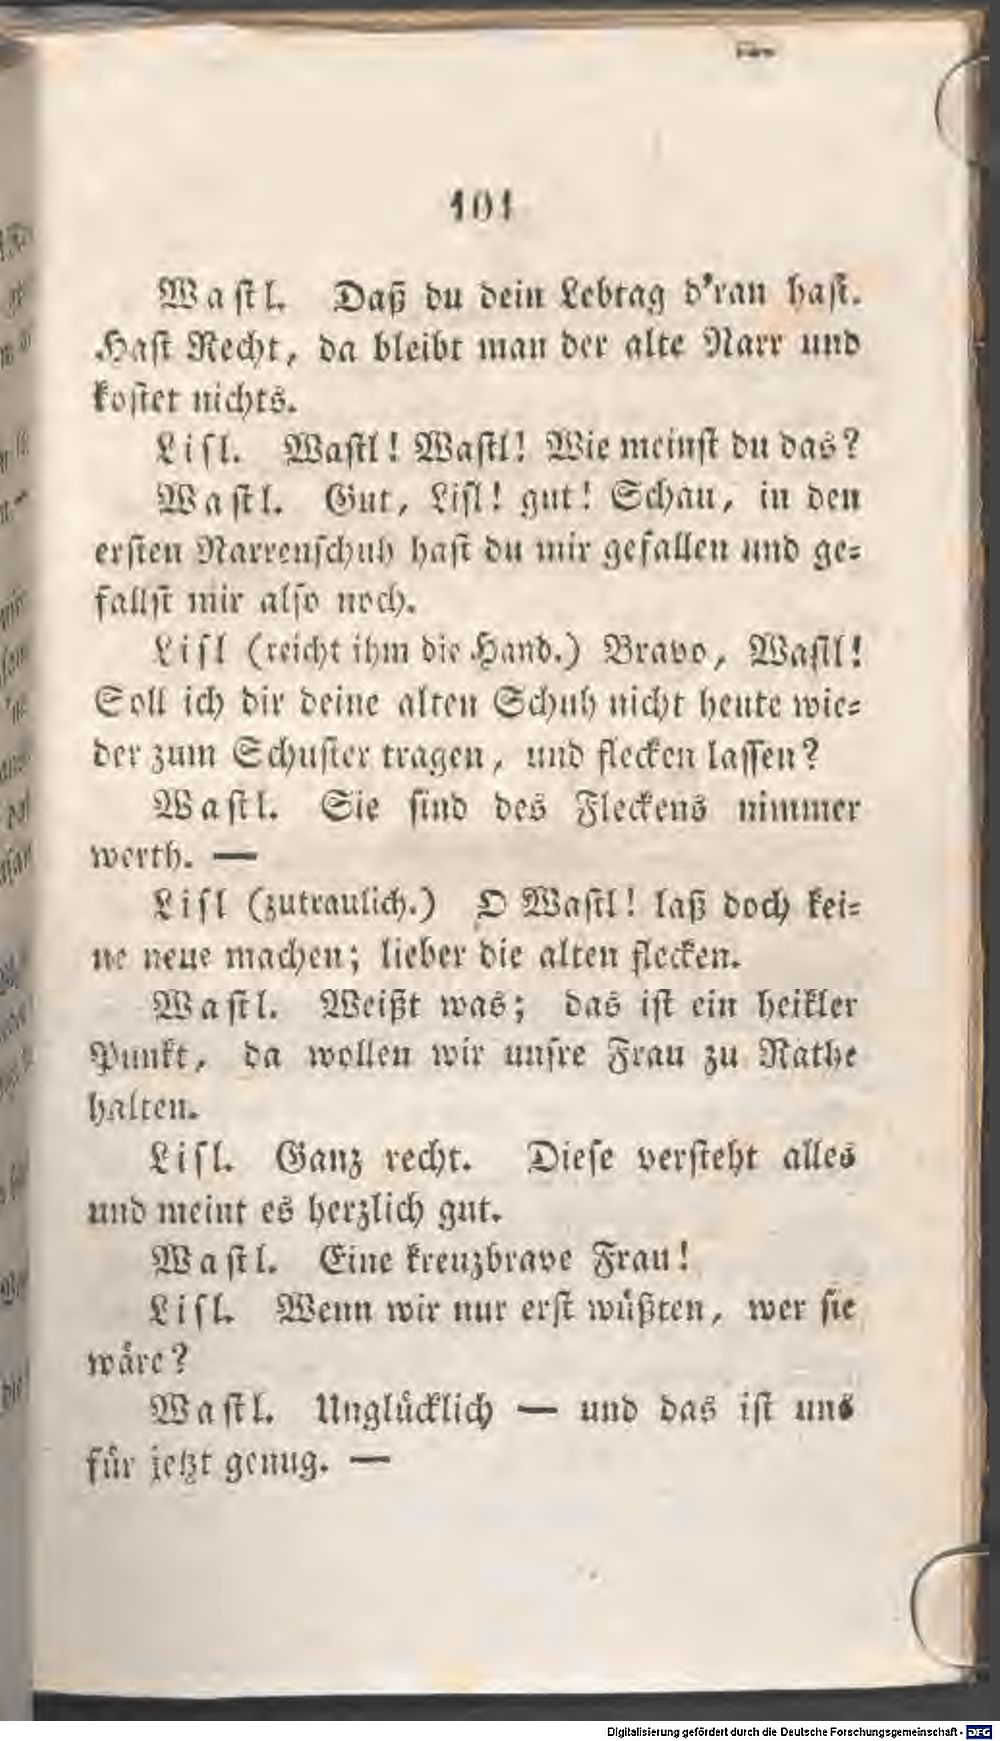 101
Wastl. Daß du dein Lebtag d'ran hast.
Hast Recht, da bleibt man der alte Narr und
kostet nichts.
Lisl. Wastl! Wastl! Wie meinst du das?
Wastl. Gut, Lisl! gut! Schau, in den
ersten Narrenschuh hast du mir gefallen und ge⸗
fallst mir also noch.
Lisl (reicht ihm die Hand.) Bravo, Wastl!
Soll ich dir deine alten Schuh nicht heute wie⸗
der zum Schuster tragen, und flecken lassen?
Wastl. Sie sind des Fleckens nimmer
werth. —
Lisl (zutraulich.) O Wastl! laß doch kei⸗
ne neue machen; lieber die alten flecken.
Wastl. Weißt was; das ist ein heikler
Punkt, da wollen wir unsre Frau zu Rathe
halten.
Lisl. Ganz recht. Diese versteht alles
und meint es herzlich gut.
Wastl. Eine kreuzbrave Frau!
Lisl. Wenn wir nur erst wüßten, wer sie
wäre?
Wastl. Unglücklich — und das ist uns
für jetzt genug. —
Digitalisierung gefördert durch die Deutsche Forschungsgemeinschaft - DFG